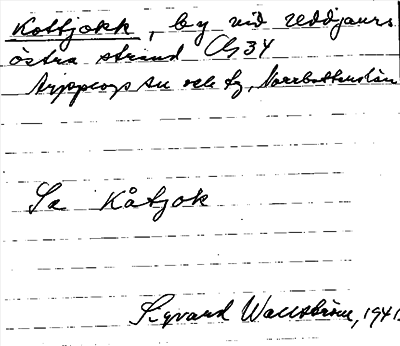 Kottjokk, by vid Uddjaurs
östra strand Cg 34
Arjeplogs sn och tg, Norrbottenslän
Se Kåtjok
Sigvard Wallström, 1941.